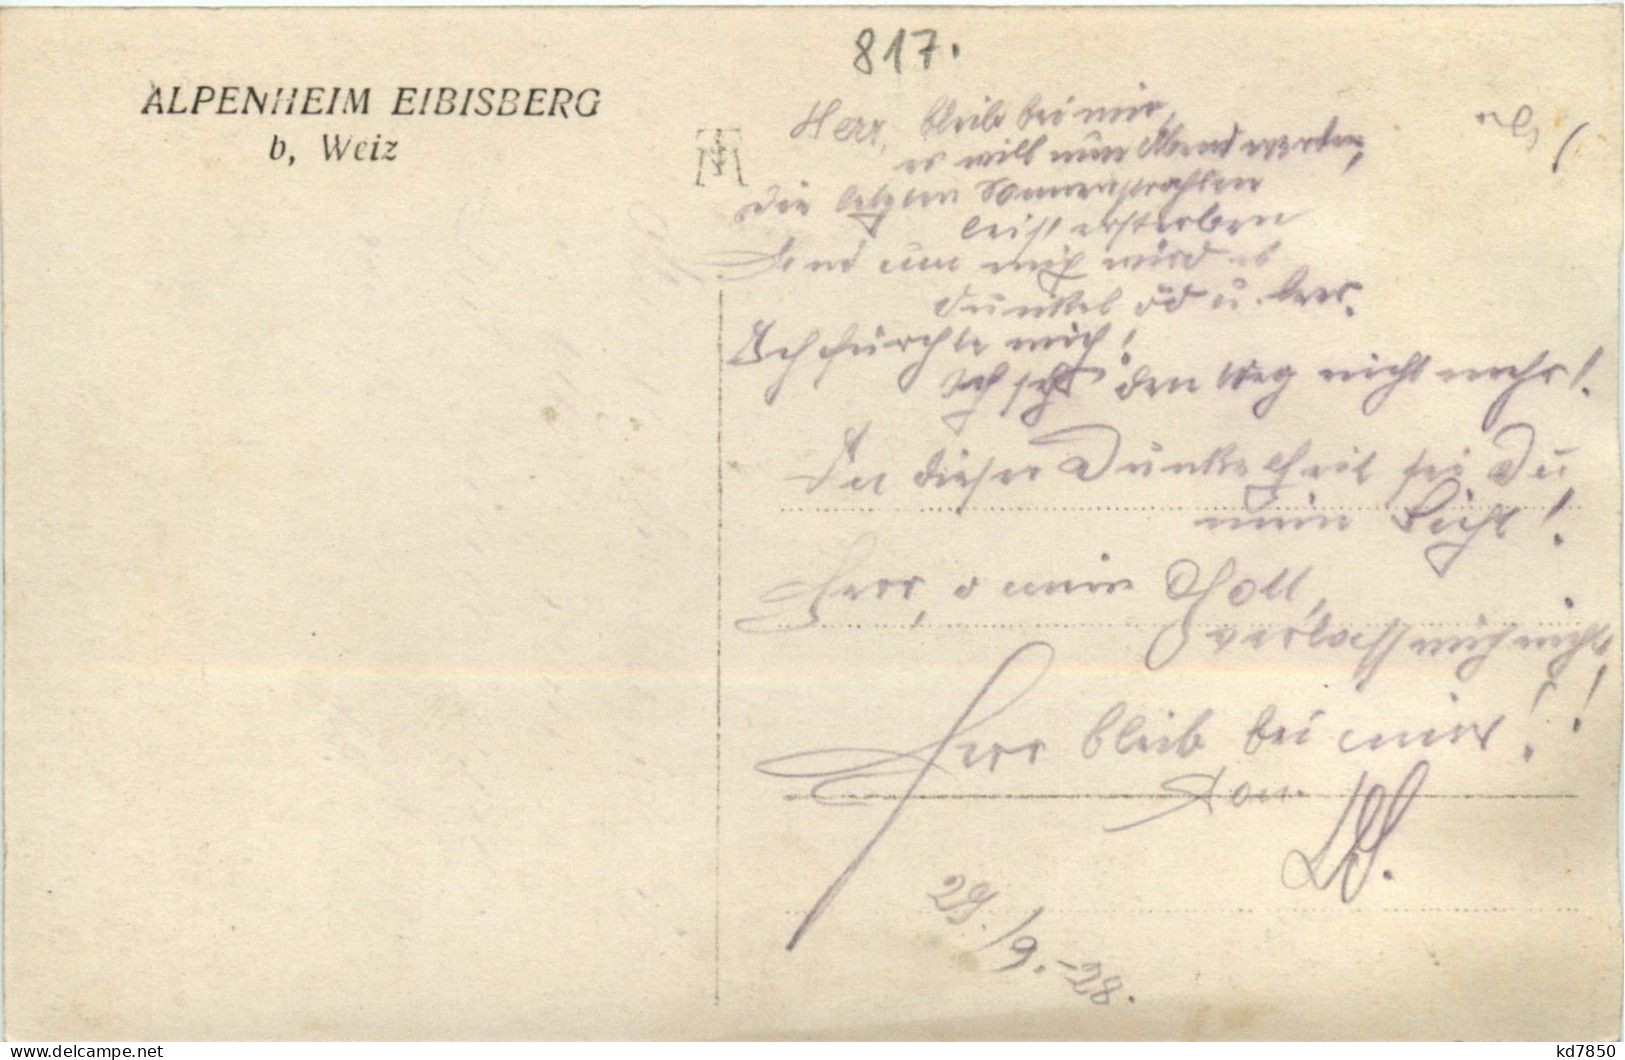 817.
ALPENHEIM EIBISBERG
b, Weiz
Herr, bleib bei mir,
es will nun Abend werden,
die letzten Sonnenstrahlen
leis ersterben
und um mich wird es
dunkel öd u. leer.
Ich fürchte mich!
Ich seh' den Weg nicht mehr!
In dieser Dunkelheit sei Du
mein Licht!
Herr, o mein Gott,
verlass mich nicht!
Herr bleib bei mir!!
29./9.-28.
delcampe.net
kd7850